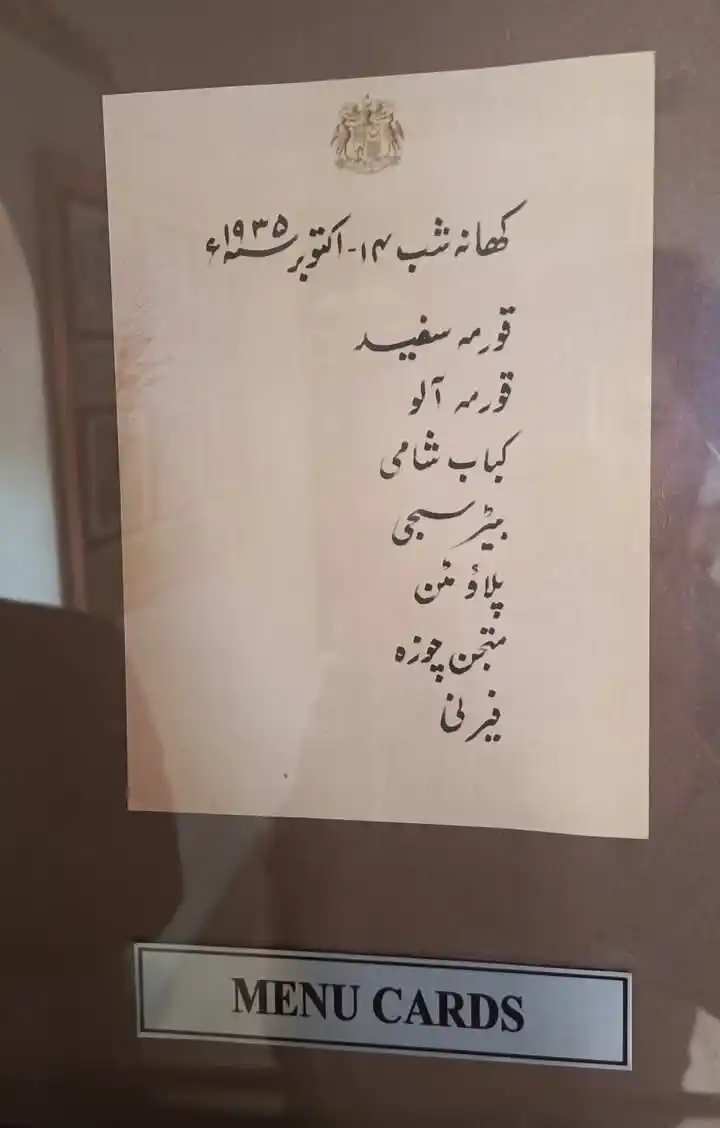 کھانہ شب ۱۴-اکتوبر سنہ ۱۹۳۵ء
قورمہ سفید
قورمہ آلو
کباب شامی
بیٹر سجی
پلاؤ مٹن
متنجن چوزہ
فیرنی
MENU CARDS